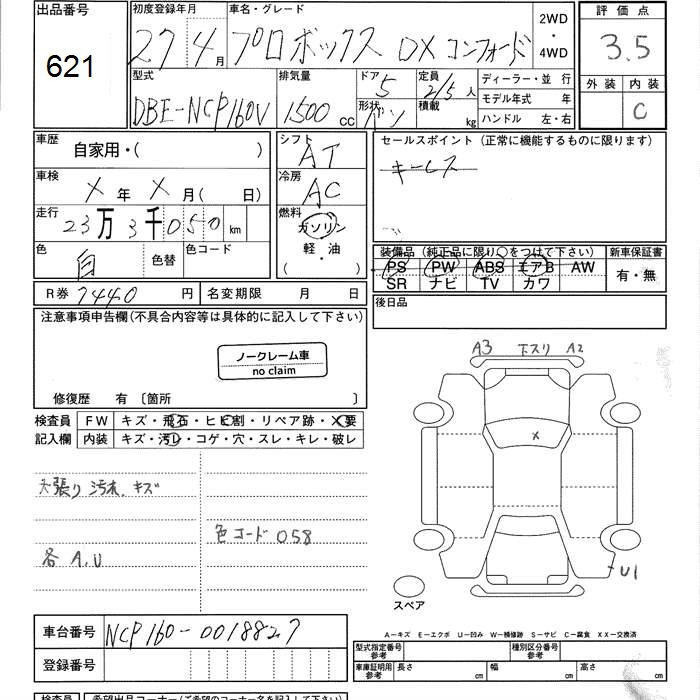 出品番号
621
初度登録年月
27 4月
車名・グレード
プロボックス DX コンフォード
2WD
・
4WD
評価点
3.5
外装 内装
C
型式
DBE-NCP160V
排気量
1500 cc
ドア 5
形状 バン
定員 2/5 人
積載 kg
ディーラー・並行
モデル年式 年
ハンドル 左・右
車歴
自家用・( )
車検
X 年 X 月( 日)
走行
23万3千050 km
色
白
色替
色コード
シフト
AT
冷房
AC
燃料
ガソリン
・
軽・油
( )
セールスポイント (正常に機能するものに限ります)
キーレス
装備品 (純正品に限り○をつけて下さい)
PS PW ABS エアB AW
SR ナビ TV カワ
新車保証書
有・無
R券 7440 円
名変期限 月 日
後日品
注意事項申告欄(不具合内容等は具体的に記入して下さい)
ノークレーム車
no claim
修復歴 有 〔箇所 〕
検査員
記入欄
FW キズ・飛石・ヒビ割・リペア跡・X要
内装 キズ・汚レ・コゲ・穴・スレ・キレ・破レ
天張り 汚れ、キズ
色コード 058
各 A,U
A3 下スリ A2
X
U1
スペア
A-キズ E-エクボ U-凹み W-補修跡 S-サビ C-腐食 XX-交換済
車台番号
NCP160-0018827
登録番号
型式指定番号
参考
種別区分番号
参考
車庫証明用
参考
長さ cm 幅 cm 高さ cm
検査員 希望出品コーナー(ご希望のコーナー名を記入下さい)